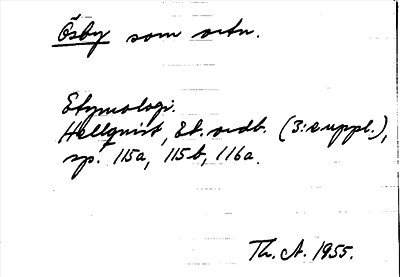 Ösby som ortn.
Etymologi.
Hellquist, Et. ordb. (3:e uppl.),
sp. 115a, 115b, 116a.
Th. A. 1955.